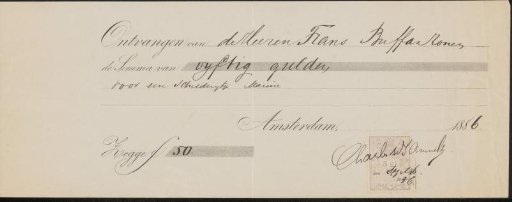 Ontvangen van de Heeren Frans Buffa & Zonen
de Somma van vyftig gulden
voor een schilderijtje Marine
Amsterdam, 1886
Zegge f 50
Charles